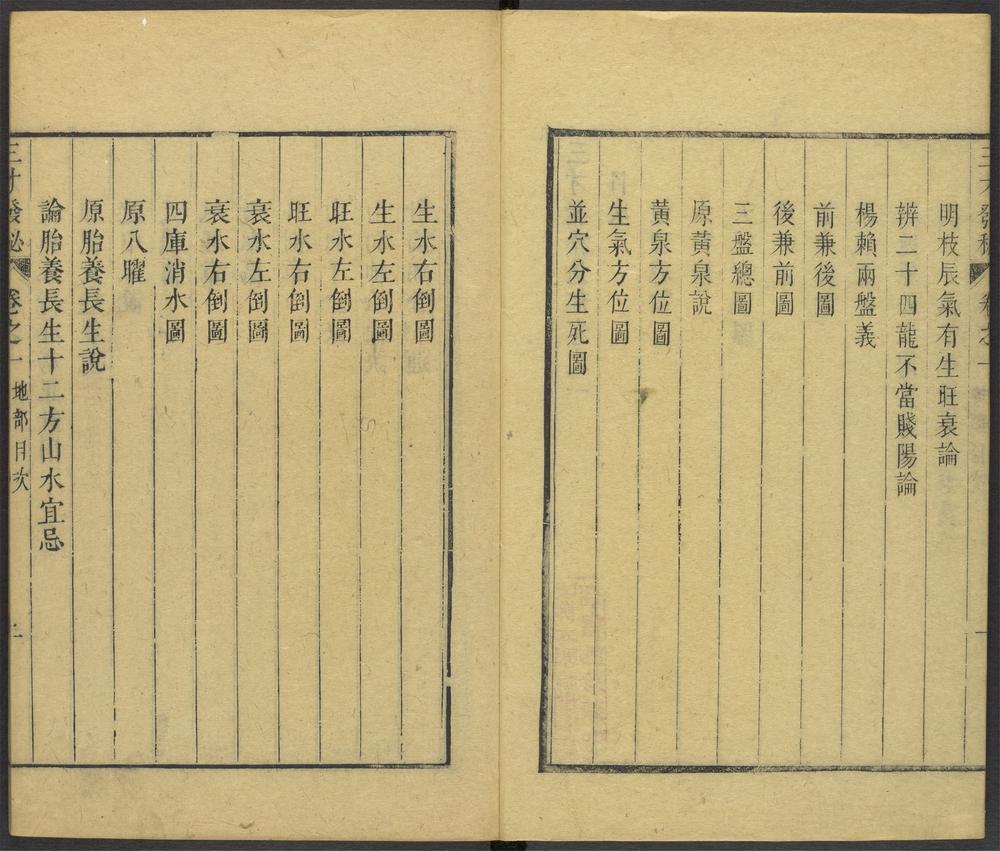 三才發秘 卷之一 一
明枝辰氣有生旺衰論
辨二十四龍不當賤陽論
楊賴兩盤義
前兼後圖
後兼前圖
三盤總圖
原黃泉說
黃泉方位圖
生氣方位圖
並穴分生死圖
生水右倒圖
生水左倒圖
旺水左倒圖
旺水右倒圖
衰水左倒圖
衰水右倒圖
四庫消水圖
原八曜
原胎養長生說
論胎養長生十二方山水宜忌
三才發秘 卷之一 地部目次 二